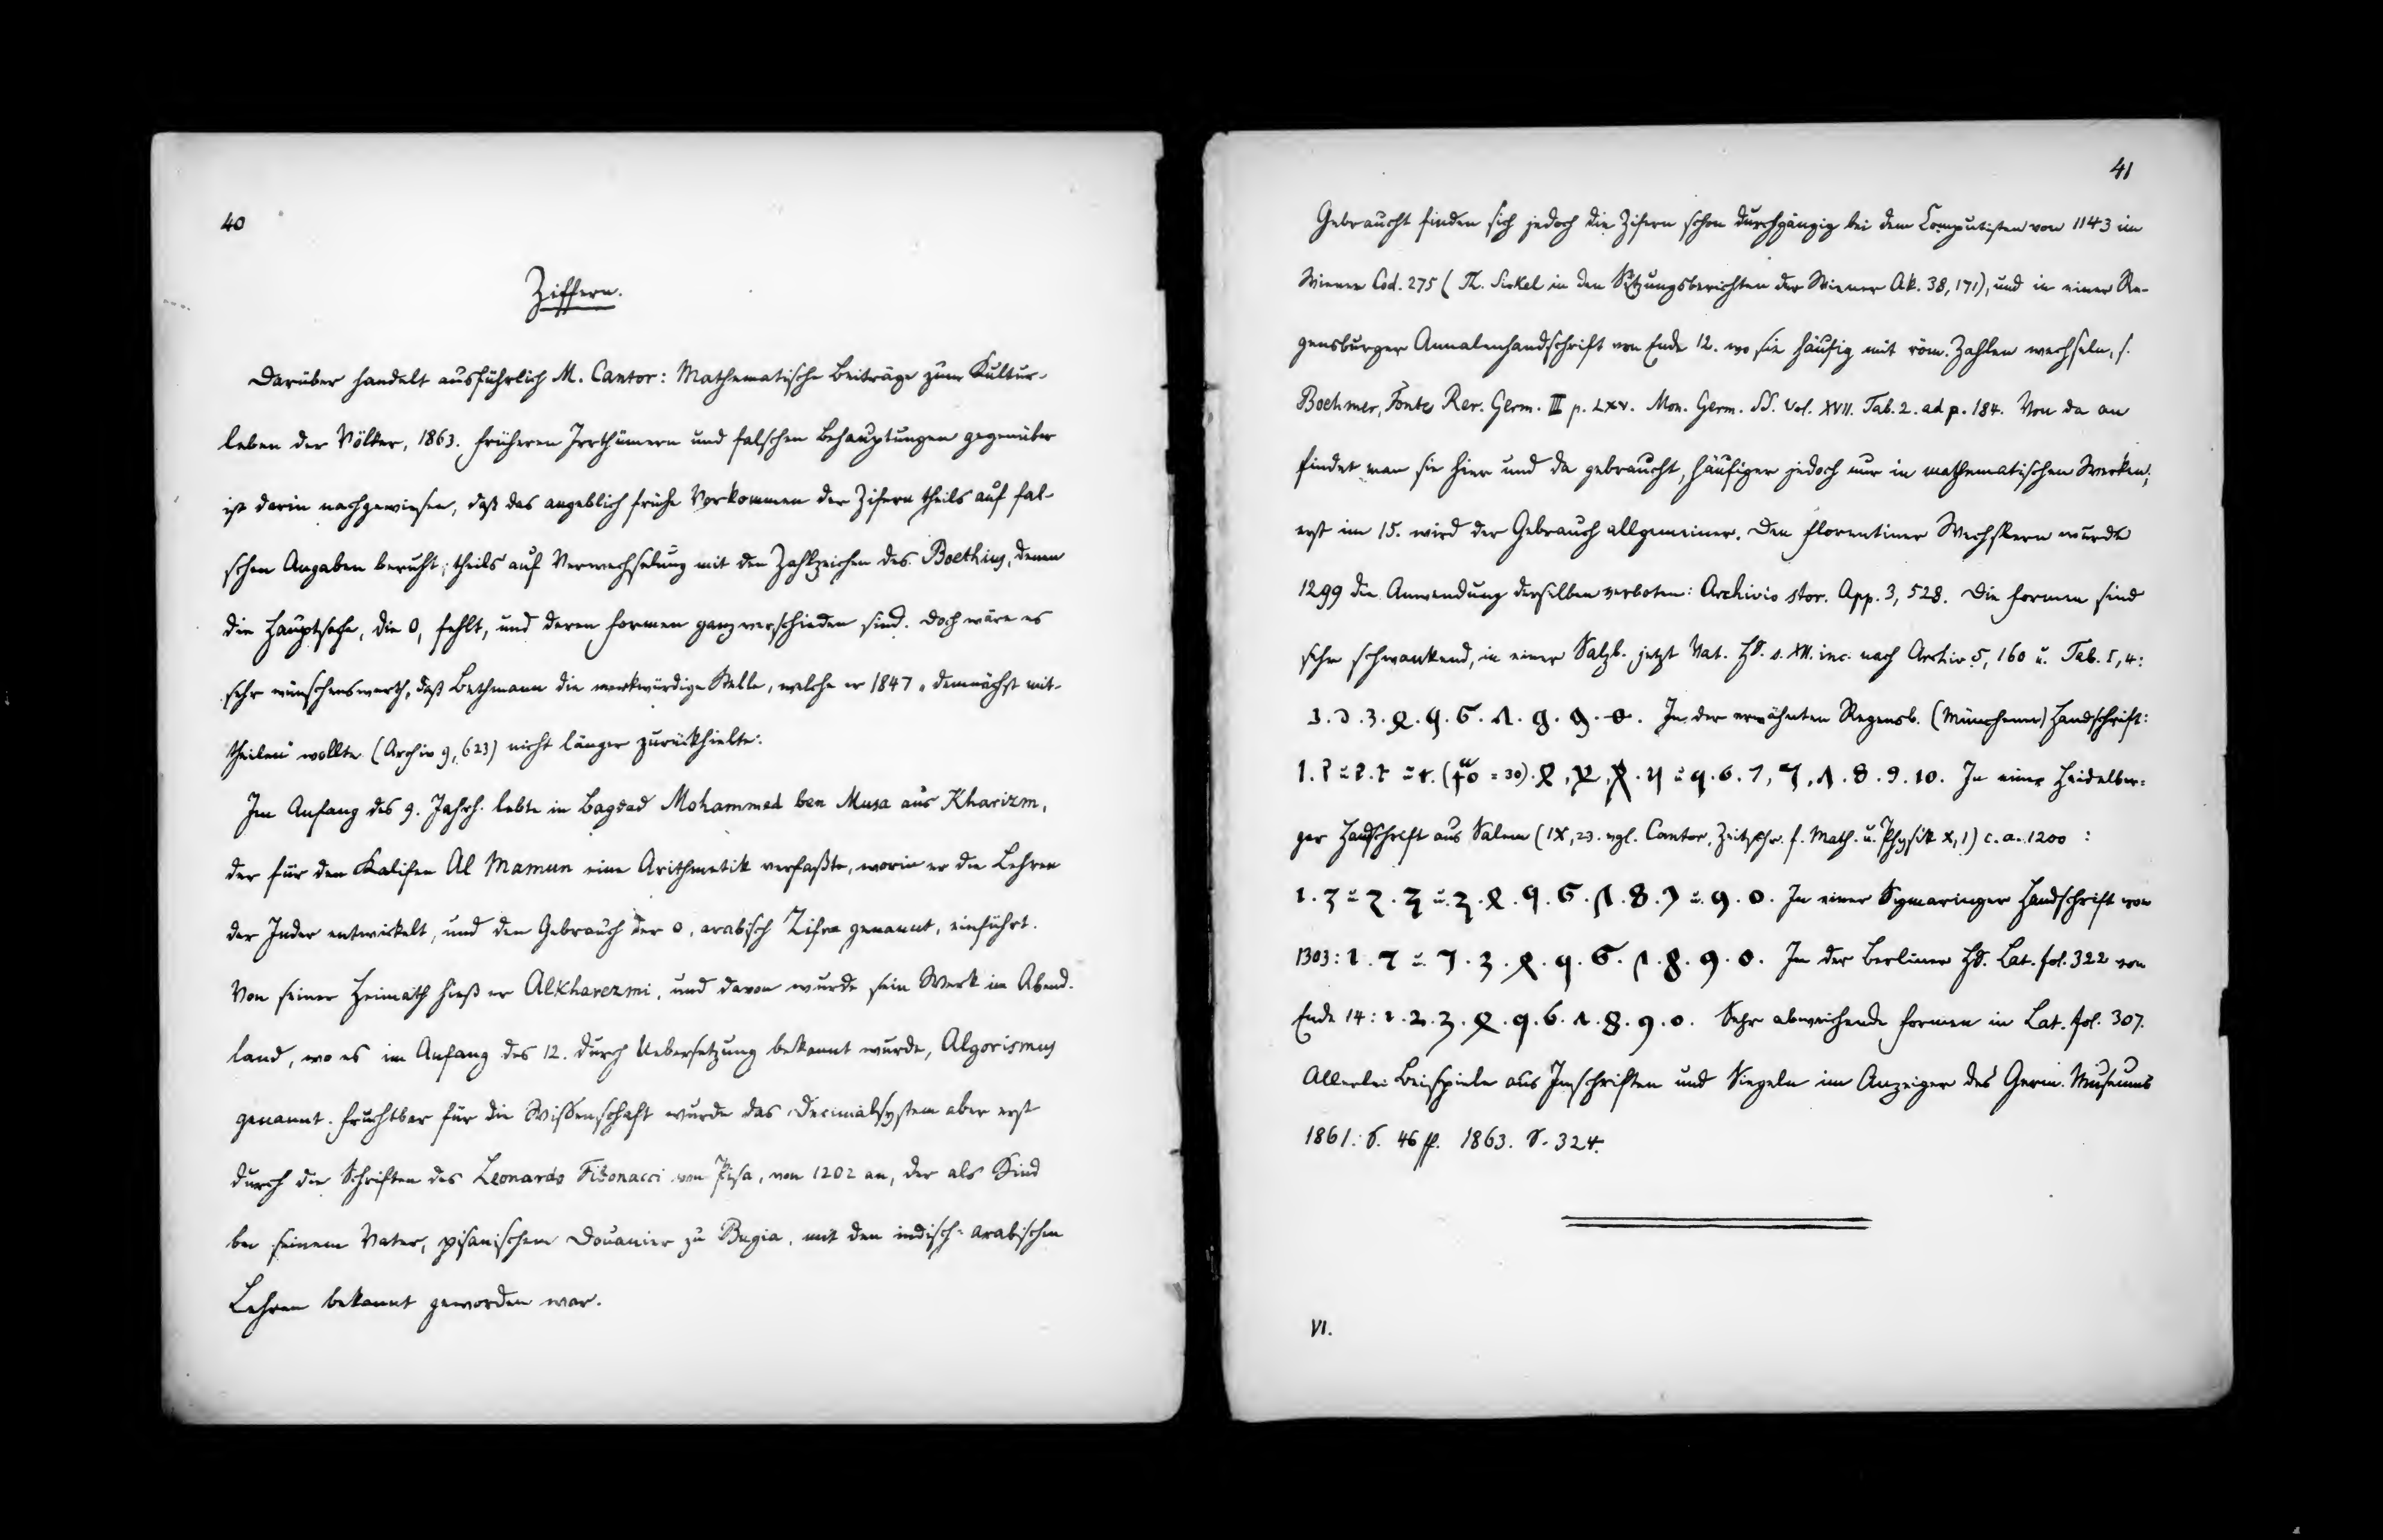 40
Ziffern.
Darüber handelt ausführlich M. Cantor: Mathematische Beiträge zum Kultur-
leben der Völker, 1863. Früheren Irrthümern und falschen Behauptungen gegenüber
ist darin nachgewiesen, daß das angeblich frühe Vorkommen der Zifern theils auf fal-
schen Angaben beruht, theils auf Verwechselung mit den Zahlzeichen des Boethius, denen
die Hauptsache, die 0, fehlt, und deren Formen ganz verschieden sind. Doch wäre es
sehr wünschenswerth, daß Bethmann die merkwürdige Stelle, welche er 1847 „demnächst mit-
theilen" wollte (Archiv 9, 623) nicht länger zurückhielte.
Im Anfang des 9. Jahrh. lebte in Bagdad Mohammed ben Musa aus Kharizm,
der für den Kalifen Al Mamun eine Arithmetik verfaßte, worin er die Lehren
der Inder entwickelt, und den Gebrauch der 0, arabisch Zifra genannt, einführt.
Von seiner Heimath hieß er Alkharezmi, und davon wurde sein Werk im Abend-
land, wo es im Anfang des 12. durch Uebersetzung bekannt wurde, Algorismus
genannt. Fruchtbar für die Wissenschaft wurde das Decimalsystem aber erst
durch die Schriften des Leonardo Fibonacci von Pisa, von 1202 an, der als Kind
bei seinem Vater, pisanischem Douanier zu Bugia, mit den indisch-arabischen
Lehren bekannt geworden war.
41
Gebraucht finden sich jedoch die Zifern schon durchgängig bei dem Computisten von 1143 im
Wiener Cod. 275 (Th. Sickel in den Sitzungsberichten der Wiener Ak. 38, 171), und in einer Re-
gensburger Annalenhandschrift von Ende 12. wo sie häufig mit röm. Zahlen wechseln, s.
Boehmer, Fontes Rer. Germ. III p. LXV. Mon. Germ. SS. Vol. XVII. Tab. 2. ad p. 184. Von da an
findet man sie hier und da gebraucht, häufiger jedoch nur in mathematischen Werken;
erst im 15. wird der Gebrauch allgemeiner. Den Florentiner Wechslern wurde
1299 die Anwendung derselben verboten: Archivio stor. App. 3, 528. Die Formen sind
sehr schwankend, in einer Salzb. jetzt Vat. Hs. s. XII. inc. nach Archiv 5, 160 u. Tab. I, 4:
In der erwähnten Regensb. (Münchener) Handschrift:
In einer Heidelber-
ger Handschrift aus Salem (IX, 23. vgl. Cantor, Zeitschr. f. Math. u. Physik X, 1) c. a. 1200 :
In einer Sigmaringer Handschrift von
1303: In der Berliner Hs. Lat. fol. 322 von
Ende 14: 1. 2. 3. 6. 8. 9. 0. Sehr abweichende Formen in Lat. fol. 307.
Allerlei Beispiele aus Inschriften und Siegeln im Anzeiger des Germ. Museums
1861. S. 46 ff. 1863. S. 324.
VI.